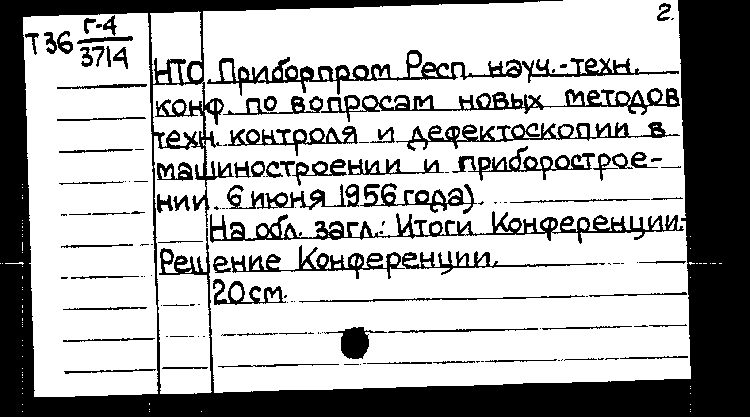 2.
Т36 Г-4
3714
НТО. Приборпром Респ. науч.-техн.
конф. по вопросам новых методов
техн. контроля и дефектоскопии в
машиностроении и приборострое-
нии. 6 июня 1956 года).
На обл. загл.: Итоги Конференции.
Решение Конференции.
20 см.